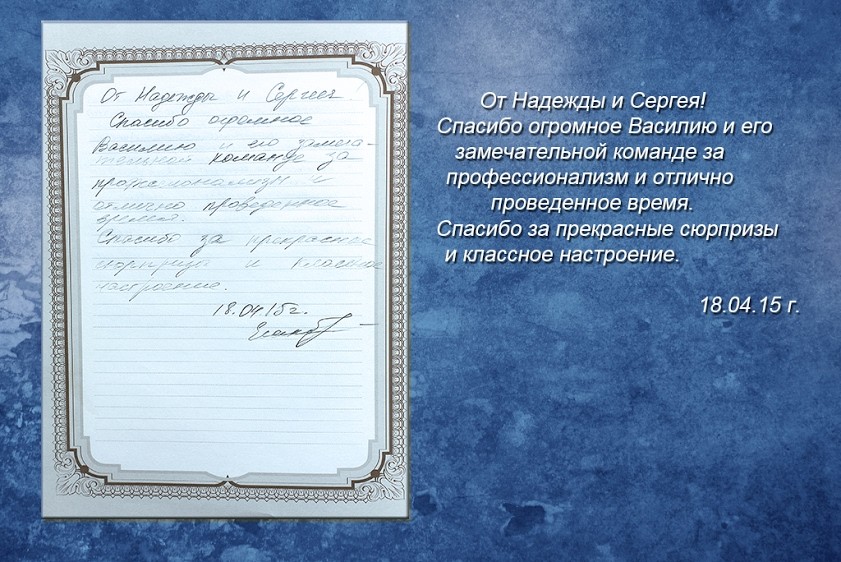 От Надежды и Сергея
Спасибо огромное
Василию и его замеча-
тельной команде за
профессионализм и
отлично проведенное
время.
Спасибо за прекрасные
сюрпризы и классное
настроение.
18.04.15г.
От Надежды и Сергея!
Спасибо огромное Василию и его
замечательной команде за
профессионализм и отлично
проведенное время.
Спасибо за прекрасные сюрпризы
и классное настроение.
18.04.15 г.